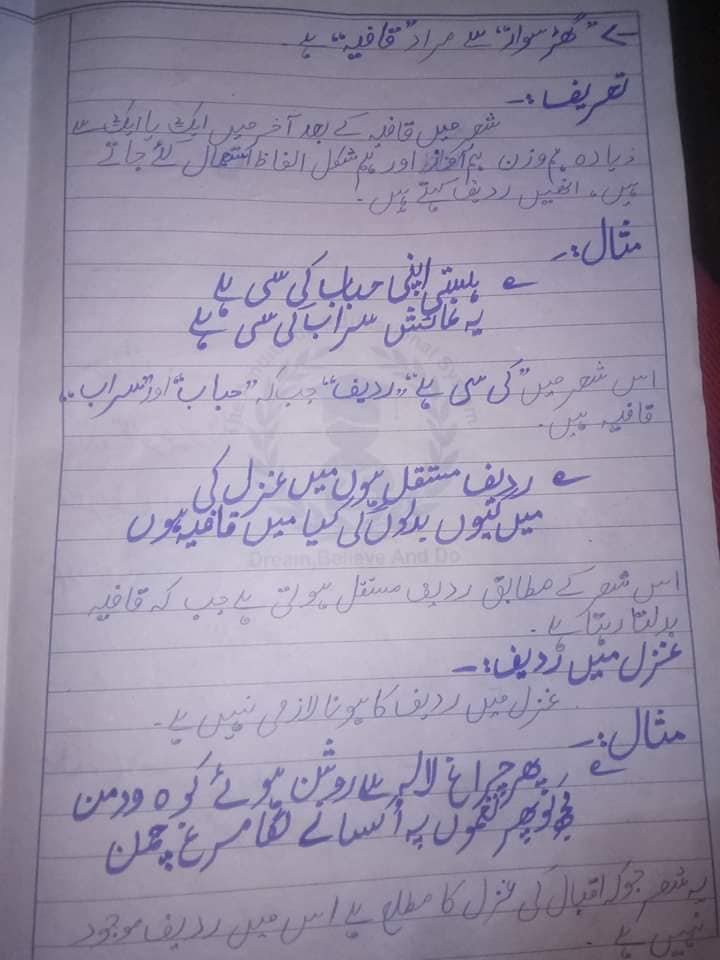 ← "گھڑ سوار" سے مراد "قافیہ" ہے۔
تعریف:۔
شعر میں قافیہ کے بعد آخر میں ایک یا ایک سے
زیادہ ہم وزن ہم آواز اور ہم شکل الفاظ استعمال کئے جاتے
ہیں، انھیں ردیف کہتے ہیں۔
مثال:۔
ہستی اپنی حباب کی سی ہے
یہ نمائش سراب کی سی ہے
اس شعر میں "کی سی ہے" "ردیف" جب کہ "حباب" اور "سراب"
قافیہ ہیں۔
ردیف مستقل ہوں میں غزل کی
میں کیوں بدلوں گی کیا میں قافیہ ہوں
Dream, Believe And Do
اس شعر کے مطابق ردیف مستقل ہوتی ہے جب کہ قافیہ
بدلتا رہتا ہے۔
غزل میں ردیف:۔
غزل میں ردیف کا ہونا لازمی نہیں ہے۔
مثال:۔
پھر چراغ لالہ سے روشن ہوئے کوہ و دمن
پھر نغموں پہ اُکسانے لگا مرغ چمن
یہ شعر جوکہ اقبال کی غزل کا مطلع ہے اس میں ردیف موجود
نہیں ہے۔